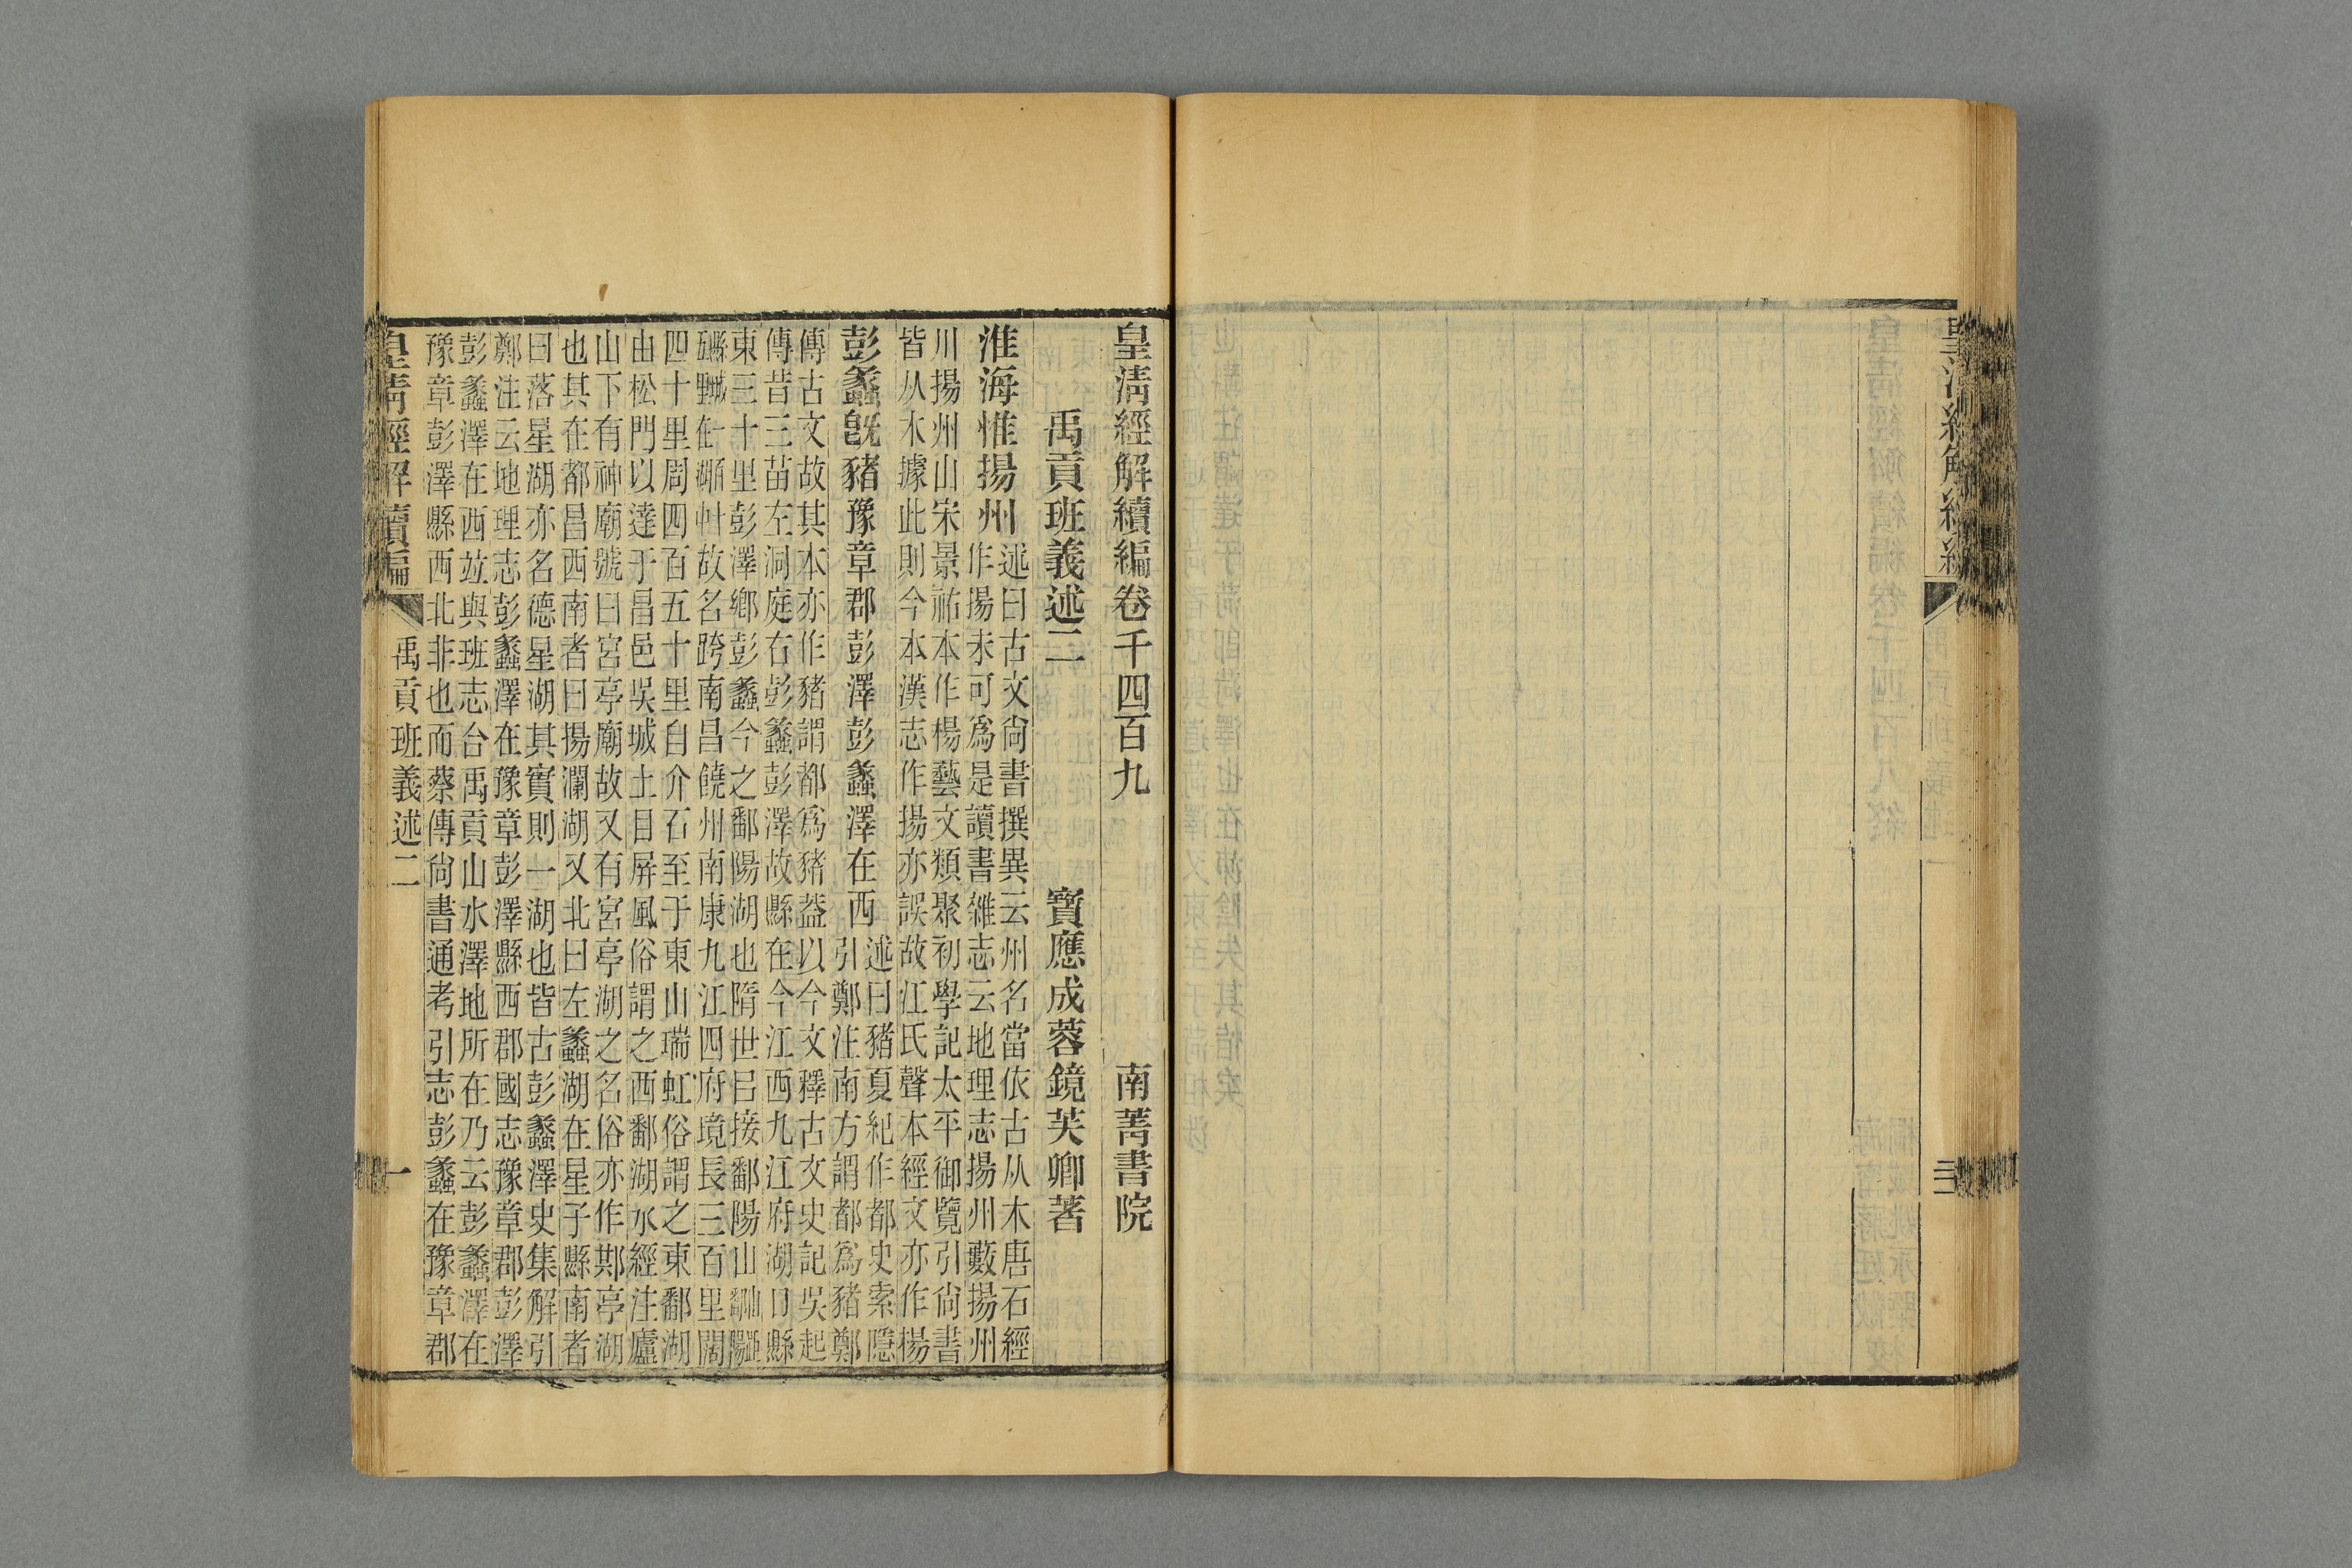 皇清經解續編卷千四百九 南菁書院
禹貢班義述二 寶應成蓉鏡芙卿著
淮海惟揚州
述曰古文尙書撰異云州名當依古从木唐石經
作揚未可爲是讀書雜志云地理志揚州藪揚州
川揚州山宋景祐本作楊藝文類聚初學記太平御覽引尙書
皆从木據此則今本漢志作揚亦誤故江氏聲本經文亦作楊
彭蠡旣豬豫章郡彭澤彭蠡澤在西
述曰豬夏紀作都史索隱
引鄭注南方謂都爲豬鄭
傳古文故其本亦作豬謂都爲豬葢以今文釋古文史記吳起
傳昔三苗左洞庭右彭蠡彭澤故縣在今江西九江府湖口縣
東三十里彭澤鄉彭蠡今之鄱陽湖也隋世㠯接鄱陽山
故名跨南昌饒州南康九江四府境長三百里闊
四十里周四百五十里自介石至于東山瑞虹俗謂之東鄱湖
由松門以達于昌邑吳城土目屏風俗謂之西鄱湖水經注廬
山下有神廟號曰宮亭廟故又有宮亭湖之名俗亦作䢼亭湖
也其在都昌西南者曰揚瀾湖又北曰左蠡湖在星子縣南者
曰落星湖亦名德星湖其實則一湖也皆古彭蠡澤史集解引
鄭注云地理志彭蠡澤在豫章彭澤縣西郡國志豫章郡彭澤
彭蠡澤在西竝與班志台禹貢山水澤地所在乃云彭蠡澤在
豫章彭澤縣西北非也而蔡傳尙書通考引志彭蠡在豫章郡
皇清經解續編 禹貢班義述二 一